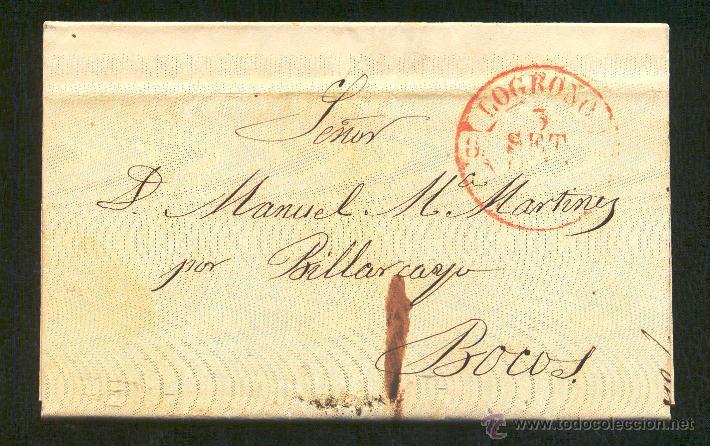 LOGROÑO
3
SET
Señor
D. Manuel Mª Martinez
por Billarcayo
Bocos.
www.todocoleccion.net